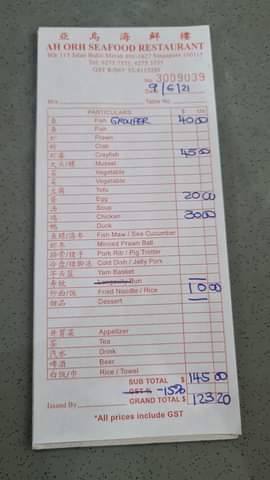 亞烏海鮮樓
AH ORH SEAFOOD RESTAURANT
Blk 115 Jalan Bukit Merah #01-1627 Singapore 160115
Tel: 6275 7575, 6275 1551
No 3009039
Date 9/6/21
M/s Table No
PARTICULARS $ Cts
魚 Fish GROUPER 40 00
魚 Fish
虾 Prawn
蟹 Crab
虾婆 Crayfish 45 00
Mussel
菜 Vegetable
菜 Vegetable
豆腐 Tofu
蛋 Egg 20 00
湯 Soup
鸡 Chicken 30 00
鸭 Duck
Fish Maw / Sea Cucumber
虾枣 Minced Prawn Ball
Pork Rib / Pig Trotter
Cold Dish / Jelly Pork
Yam Basket
寿桃 Longevity Bun
炒面/饭 Fried Noodle / Rice 10 00
甜品 Dessert
开胃菜 Appetizer
茶 Tea
汽水 Drink
啤酒 Beer
白饭/巾 Rice / Towel
SUB TOTAL $ 145 00
GST % -15%
Issued By GRAND TOTAL $ 123 20
*All prices include GST